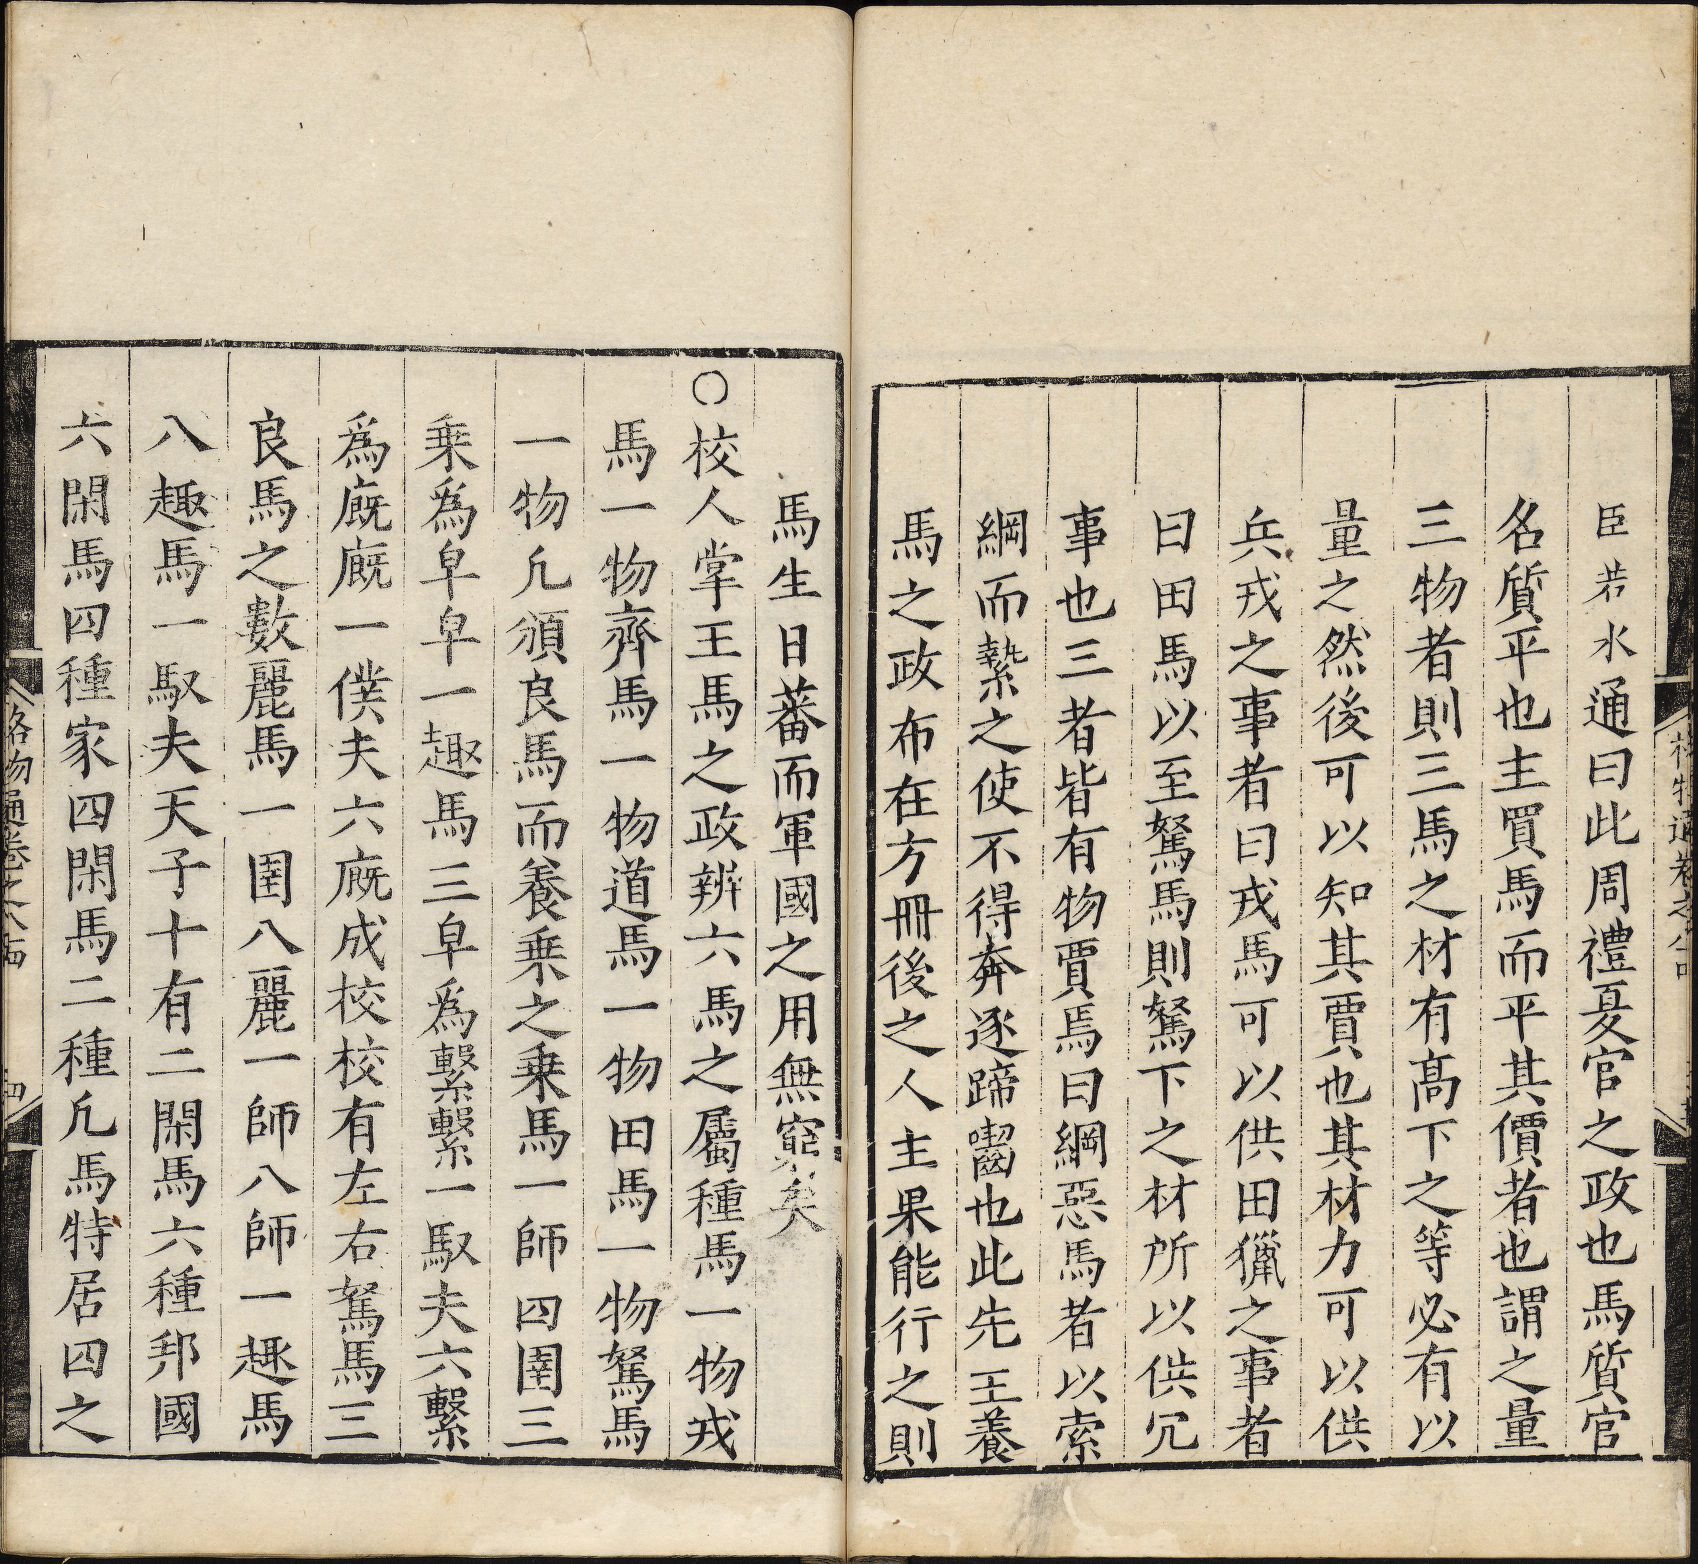 臣若水通曰此周禮夏官之政也馬質官
名質平也主買馬而平其價者也謂之量
三物者則三馬之材有高下之等必有以
量之然後可以知其賈也其材力可以供
兵戎之事者曰戎馬可以供田獵之事者
曰田馬以至駑馬則駑下之材所以供冗
事也三者皆有物賈焉曰綱惡馬者以索
綱而縶之使不得奔逐蹄齧也此先王養
馬之政布在方冊後之人主果能行之則
馬生日蕃而軍國之用無窮矣
○校人掌王馬之政辨六馬之屬種馬一物戎
馬一物齊馬一物道馬一物田馬一物駑馬
一物凢頒良馬而養乗之乗馬一師四圉三
乗爲皁皁一趣馬三皁爲繫繫一馭夫六繫
爲廐廐一僕夫六廐成校校有左右駑馬三
良馬之數麗馬一圉八麗一師八師一趣馬
八趣馬一馭夫天子十有二閑馬六種邦國
六閑馬四種家四閑馬二種凢馬特居四之
格物通卷之八